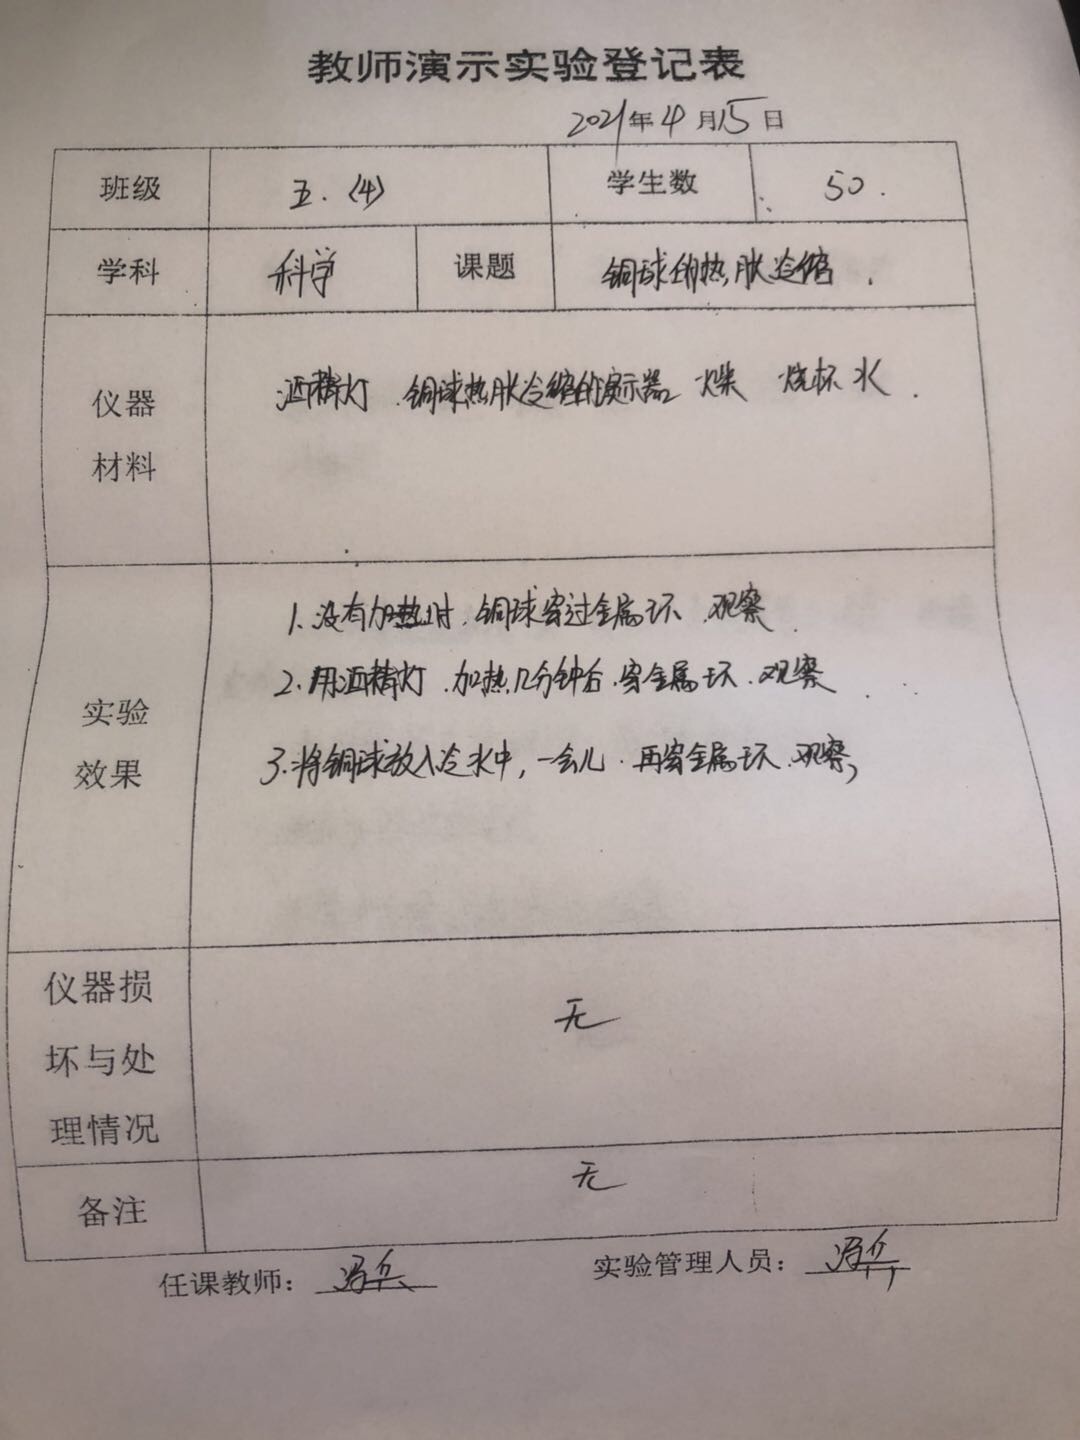 教师演示实验登记表
2021年4月15日
班级 五.(4) 学生数 50.
学科 科学 课题 铜球的热胀冷缩.
仪器材料 酒精灯.铜球热胀冷缩的演示器 烧杯 水.
实验效果
1.没有加热时.铜球穿过金属环.观察.
2.用酒精灯.加热几分钟后.穿金属环.观察
3.将铜球放入冷水中,一会儿.再穿金属环.观察,
仪器损坏与处理情况 无
备注 无
任课教师: 实验管理人员: